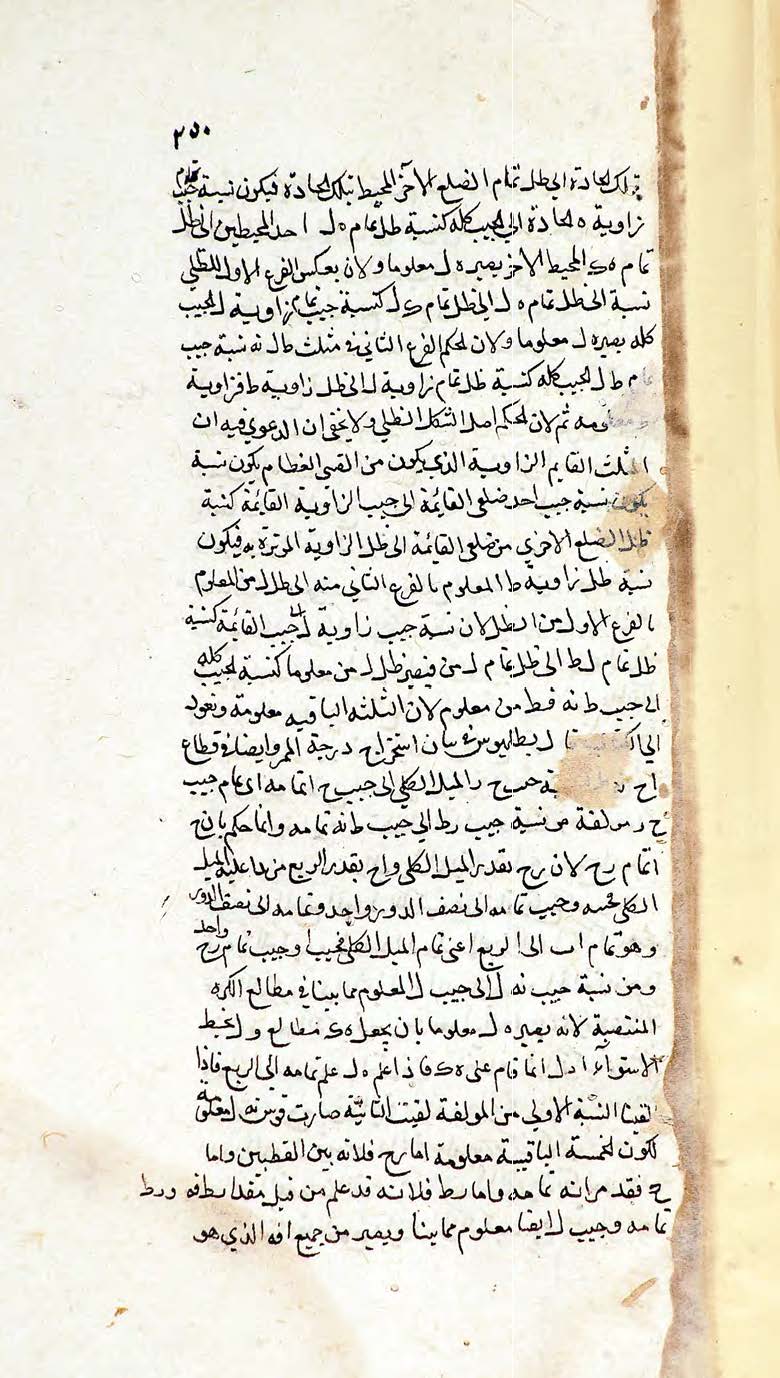 ٢٥٠
تلك الحادة الى ظل تمام الضلع الآخر المحيط بتلك الحادة فيكون نسبة جيب تمام
زاوية ه الحادة الى الجيب كله كنسبة ظل تمام ه ل احد المحيطين الى ظل
تمام ه ك المحيط الاخر يصير ه ل معلوما ولان بعكس الفرع الاول للظلي
نسبة الى ظل تمام ه ل الى ظل تمام ك ل كنسبة جيب تمام زاوية ل الجيب
كله يصير ه ل معلوما ولان لحكم الفرع الثاني في مثلث ط ل نه نسبة جيب
تمام ط ل الجيب كله كنسبة ظل تمام زاوية ل الى ظل زاوية ط فزاوية
ط ثم لان لحكم اصل الشكل الظلي ولا يخفى ان الدعوى فيه ان
المثلث القايم الزاوية الذي يكون من القسي العظام يكون نسبة
يكون نسبة جيب احد ضلعي القائمة الى جيب الزاوية القائمة كنسبة
ظل الضلع الاخرى من ضلعي القائمة الى ظل الزاوية الموترة به فيكون
نسبة ظل زاوية ط المعلوم بالفرع الثاني منه الى ظل ل من المعلوم
بالفرع الاول من الظل لان نسبة جيب زاوية ل الى جيب القائمة كنسبة
ظل تمام ل ط الى ظل تمام ل من فيصير ظل ل من معلوما كنسبة الجيب كله
الى جيب ط نه فط من معلوم لان الثلثه الباقيه معلومة ونعود
الى بطلميوس في بيان استخراج درجة الممر وايضا في قطاع
اح الميل الكلي الى جيب ح اتمامه اى تمام جيب
ح ر مولفة من نسبة جيب رط الى جيب ط نه تمامه وانما حكم بان ح
اتمام رح لان رح بقدر الميل الكلي واح بقدر الربع من ما عليه الميل
الكلي خمسه وجيب تمامه الى نصف الدور واحد وتمامه الى نصف الدور
وهو تمام اب الى الربع اعنى تمام الميل الكلي فجيب ا وجيب تمام رح واحد
ومن نسبة جيب نه ل الى جيب ل المعلوم مما بينا في مطالع الكره
المنتصبة لانه يصير ه ل معلوما بان يجعل ه ك مطالع و ل بخط
الاستواء ا د ل انما قام على ه ك فاذا علم ه ل علم تمامه الى الربع فاذا
القينا النسبة الاولى من المولفة لقيت الثانية صارت قوس نه ل معلومة
لكون الخمسة الباقيية معلومة اما رح فلانه بين القطبين واما
ح فقد مر انه تمامه واما رط فلانه قد علم من قبل مقدار ط فه ورط
تمامه وجيب ل ايضا معلوم مما بينا ويصير من جميع افه الذي هو